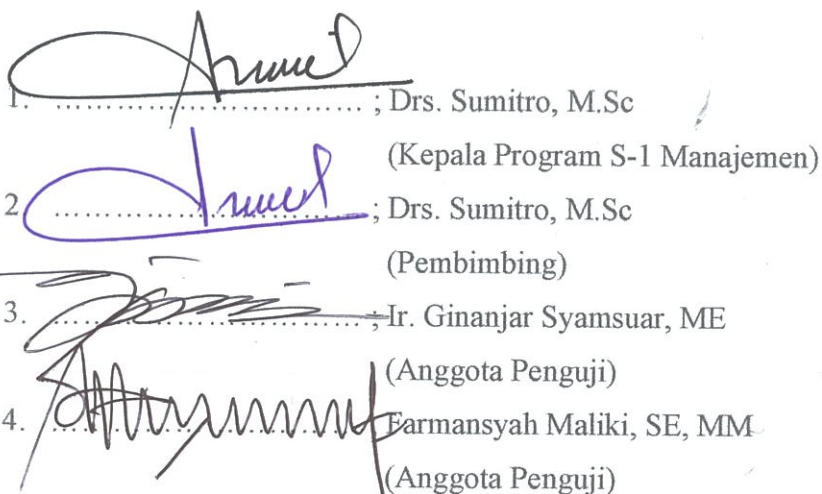 1. .............................. ; Drs. Sumitro, M.Sc
(Kepala Program S-1 Manajemen)
2 .............................. ; Drs. Sumitro, M.Sc
(Pembimbing)
3. .............................. ; Ir. Ginanjar Syamsuar, ME
(Anggota Penguji)
4. .............................. Farmansyah Maliki, SE, MM
(Anggota Penguji)